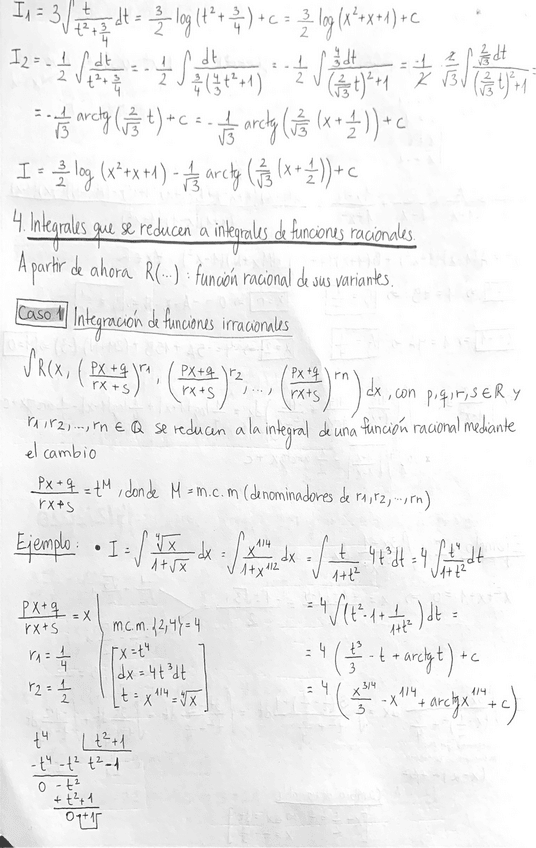 I₁ = 3∫ t/(t²+3/4) dt = 3/2 log(t²+3/4)+c = 3/2 log(x²+x+1)+c
I₂ = -1/2 ∫ dt/(t²+3/4) = -1/2 ∫ dt/(3/4(4/3 t²+1)) = -1/2 ∫ (4/3 dt)/((2/√3 t)²+1) = -1/2 2/√3 ∫ (2/√3 dt)/((2/√3 t)²+1) =
= -1/√3 arctg(2/√3 t)+c = -1/√3 arctg(2/√3 (x+1/2))+c
I = 3/2 log(x²+x+1) - 1/√3 arctg(2/√3 (x+1/2))+c
4. Integrales que se reducen a integrales de funciones racionales.
A partir de ahora R(...) : función racional de sus variantes.
Caso 1 Integración de funciones irracionales
∫R(x, ((px+q)/(rx+s))^r1, ((px+q)/(rx+s))^r2, ..., ((px+q)/(rx+s))^rn) dx, con p,q,r,s∈R y
r1,r2,...,rn ∈ Q se reducen a la integral de una función racional mediante
el cambio
(px+q)/(rx+s) = t^M, donde M = m.c.m (denominadores de r1,r2,...,rn)
Ejemplo: • I = ∫ ⁴√x/(1+√x) dx = ∫ x^(1/4)/(1+x^(1/2)) dx = ∫ t/(1+t²) 4t³dt = 4∫ t⁴/(1+t²) dt
= 4∫(t²-1+1/(1+t²))dt =
= 4(t³/3 - t + arctg t)+c
= 4(x^(3/4)/3 - x^(1/4) + arctg x^(1/4) + c)
(px+q)/(rx+s) = x
r1 = 1/4
r2 = 1/2
m.c.m. {2,4} = 4
x = t⁴
dx = 4t³dt
t = x^(1/4) = ⁴√x
t⁴ | t²+1
-t⁴ - t² t²-1
0 - t²
+ t²+1
0 +1